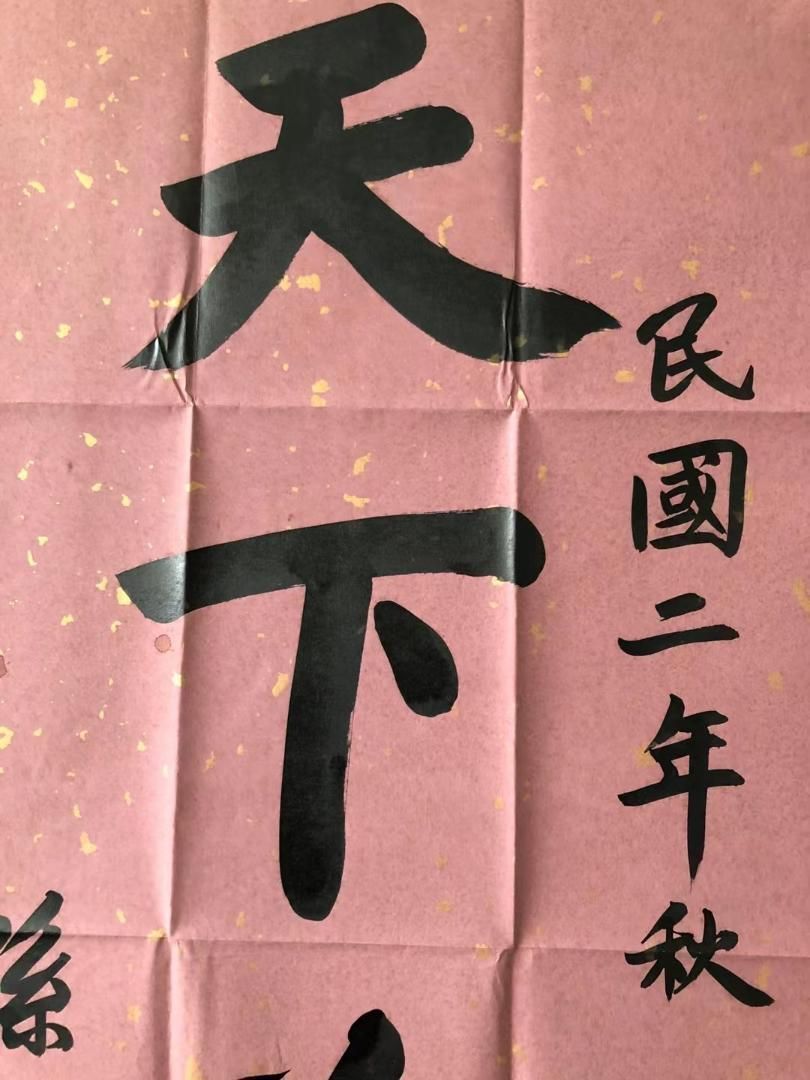 民國二年秋
天下
孫